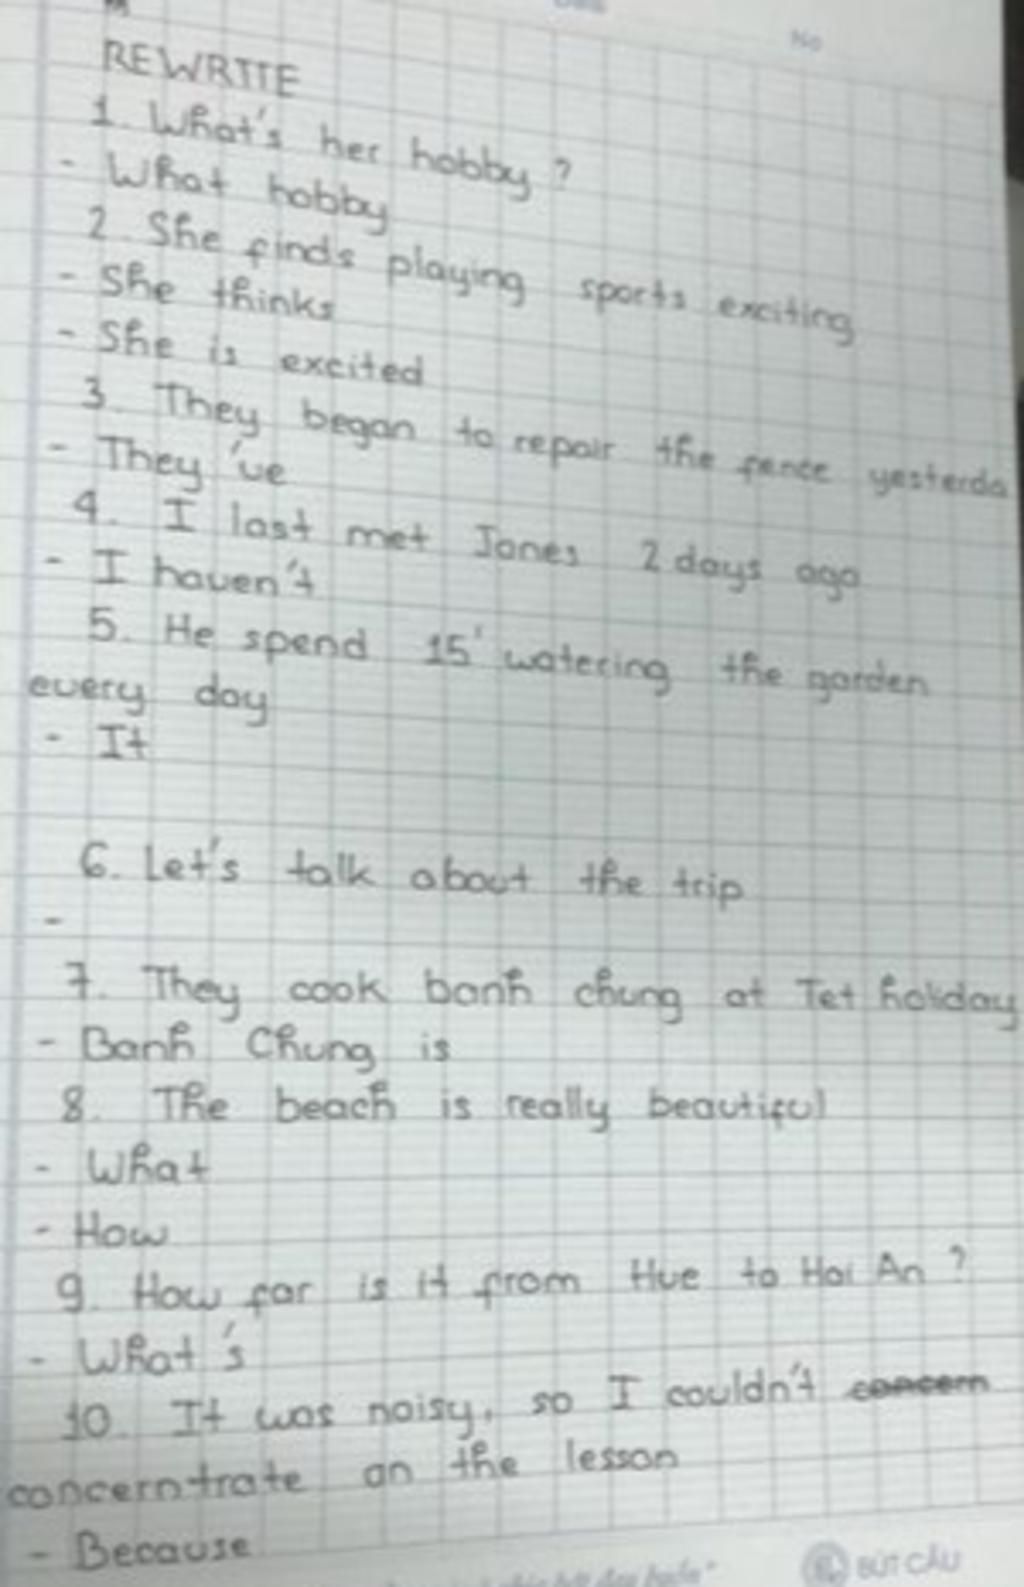 No
REWRITE
1. What's her hobby?
- What hobby
2. She finds playing sports exciting
- She thinks
- She is excited
3. They began to repair the fence yesterda
- They 've
4. I last met Jones 2 days ago
- I haven't
5. He spend 15' watering the garden
every day
- It
6. Let's talk about the trip
-
7. They cook banh chung at Tet holiday
- Banh Chung is
8. The beach is really beautiful
- What
- How
9. How far is it from Hue to Hoi An?
- What's
10. It was noisy, so I couldn't concern
concerntrate on the lesson
- Because
BÚT CÂU